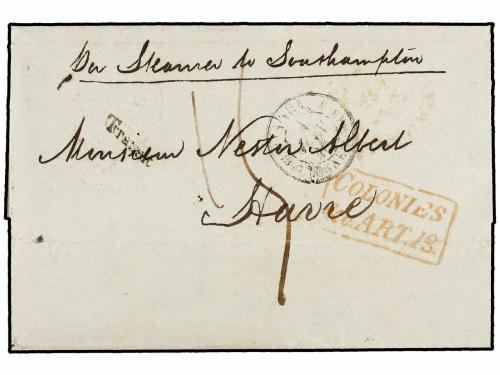 Per Steamer to Southampton
Monsieur Nestor Albert
Havre
COLONIES
&c. ART. 13.